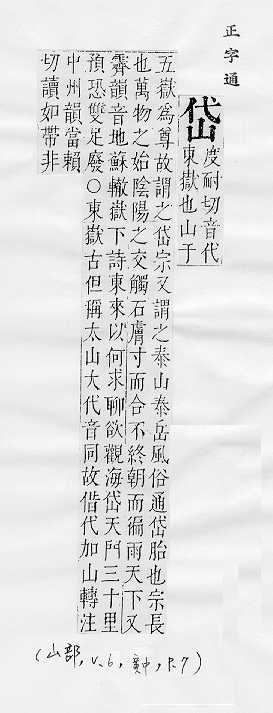 正字通
岱 度耐切音代
東嶽也山于
五嶽為尊故謂之岱宗又謂之泰山泰岳風俗通岱胎也宗長
也萬物之始陰陽之交觸石膚寸而合不終朝而徧雨天下又
霽韻音地蘇轍嶽下詩東來以何求聊欲觀海岱天門三十里
預恐雙足廢○東嶽古但稱太山大代音同故借代加山轉注
中州韻當賴
切讀如帶非
(山部, v.6, 寅中, P.7)